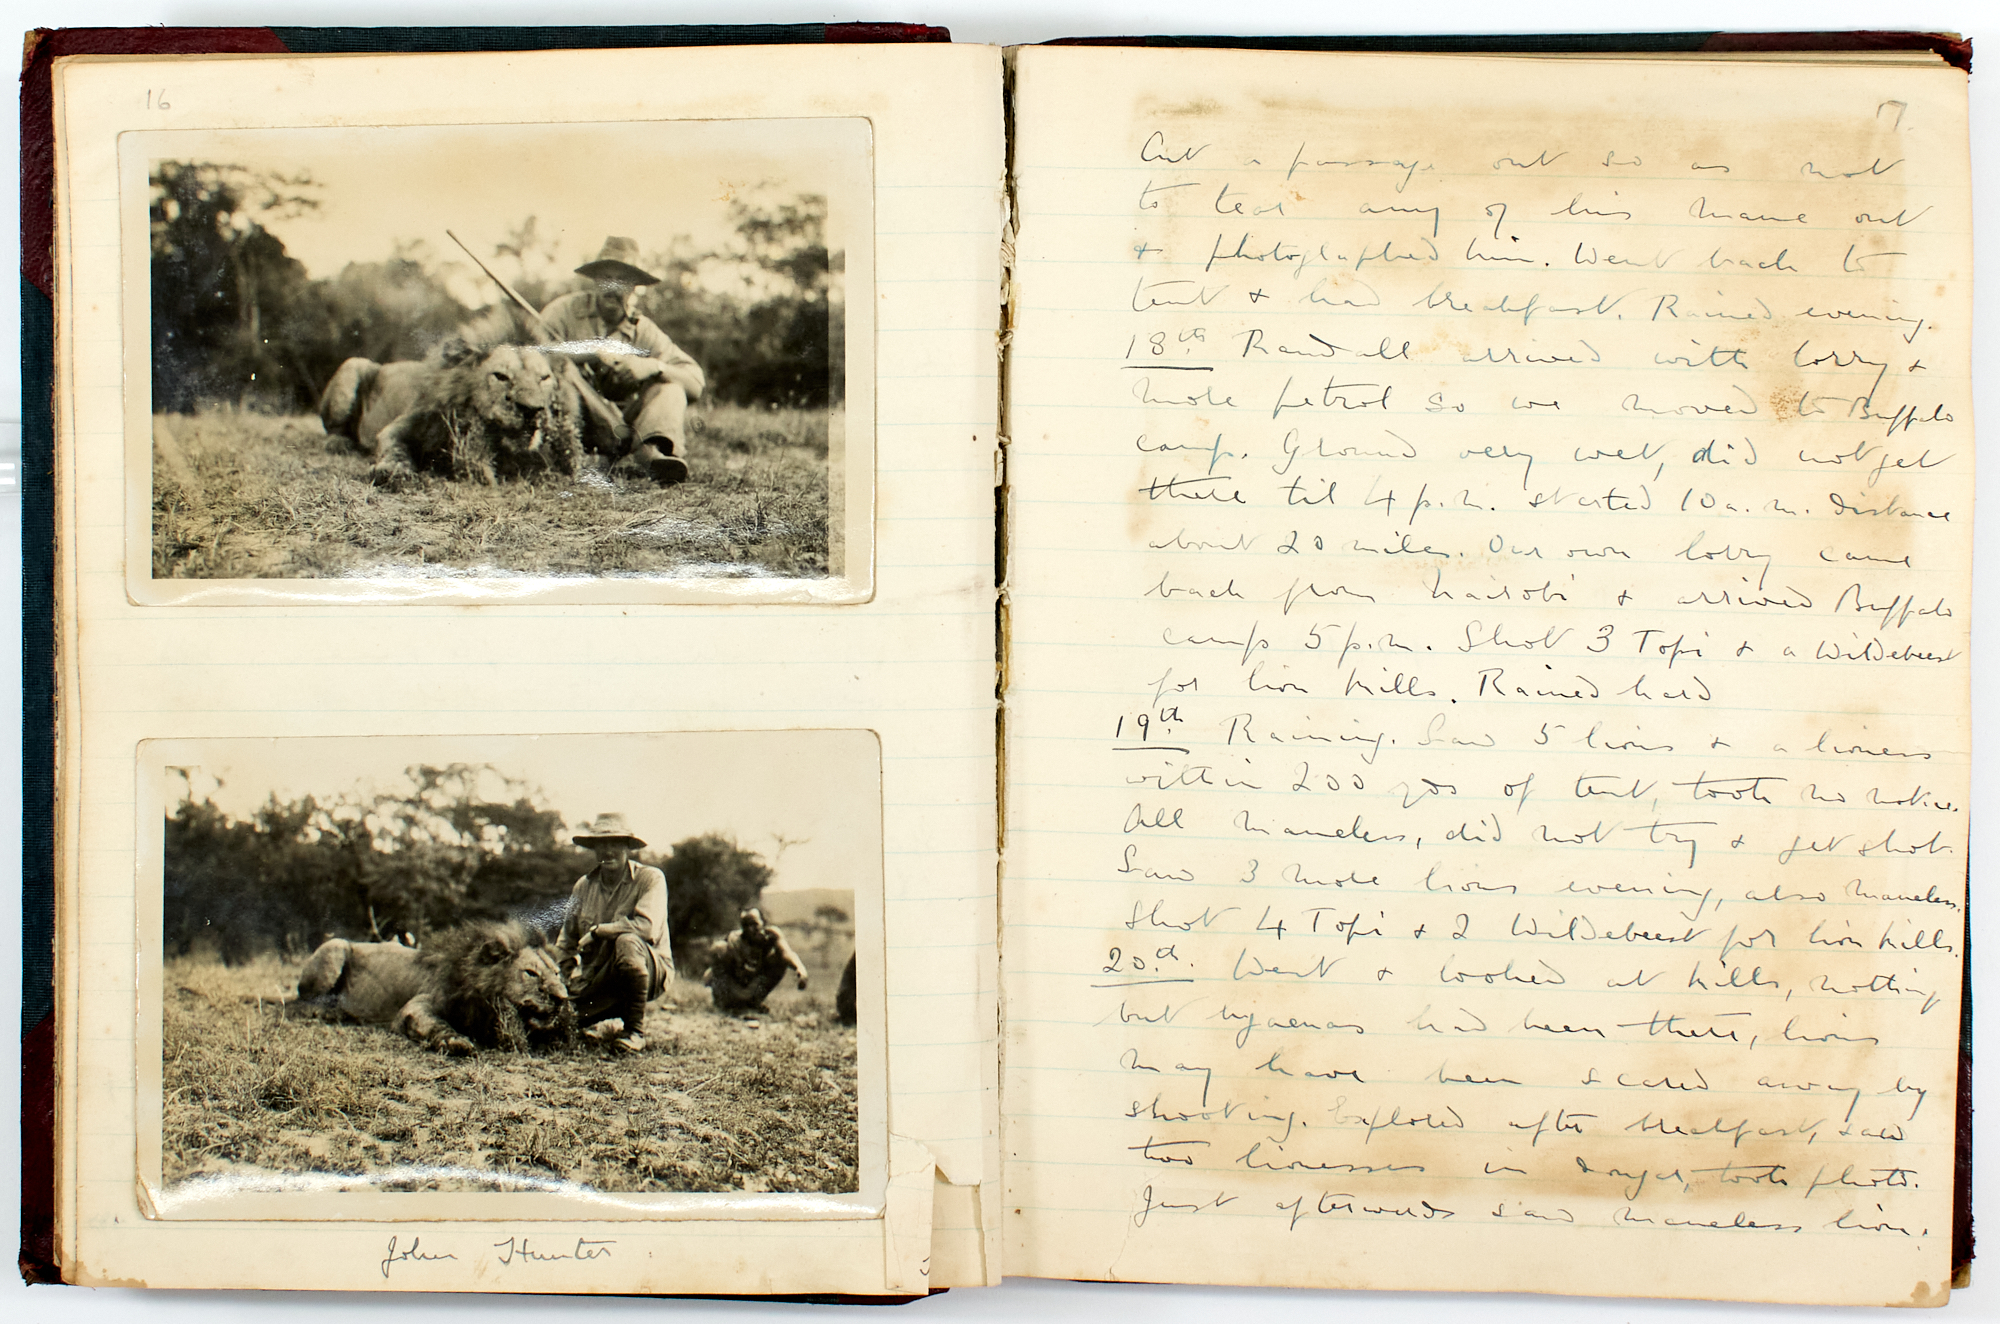 16
John Hunter
17.
Cut a passage out so as not
to tear any of his mane out
+ photographed him. Went back to
tent + had breakfast. Rained evening.
18th. Randall arrived with lorry +
more petrol so we moved to Buffalo
camp. Ground very wet, did not get
there til 4 p.m. started 10 a.m. distance
about 20 miles. Our own lorry came
back from Nairobi + arrived Buffalo
camp 5 p.m. Shot 3 Topi + a Wildebeest
for lion kills. Rained hard
19th. Raining. Saw 5 lions + a lioness
within 200 yds of tent, took no notice.
All maneless, did not try + get shot.
Saw 3 more lions evening, also maneless.
Shot 4 Topi + 2 Wildebeest for lion kills.
20th. Went + looked at kills, nothing
but hyaenas had been there, lions
may have been scared away by
shooting. Explored after breakfast, saw
two lionesses in donga, took photo.
Just afterwards saw maneless lion.